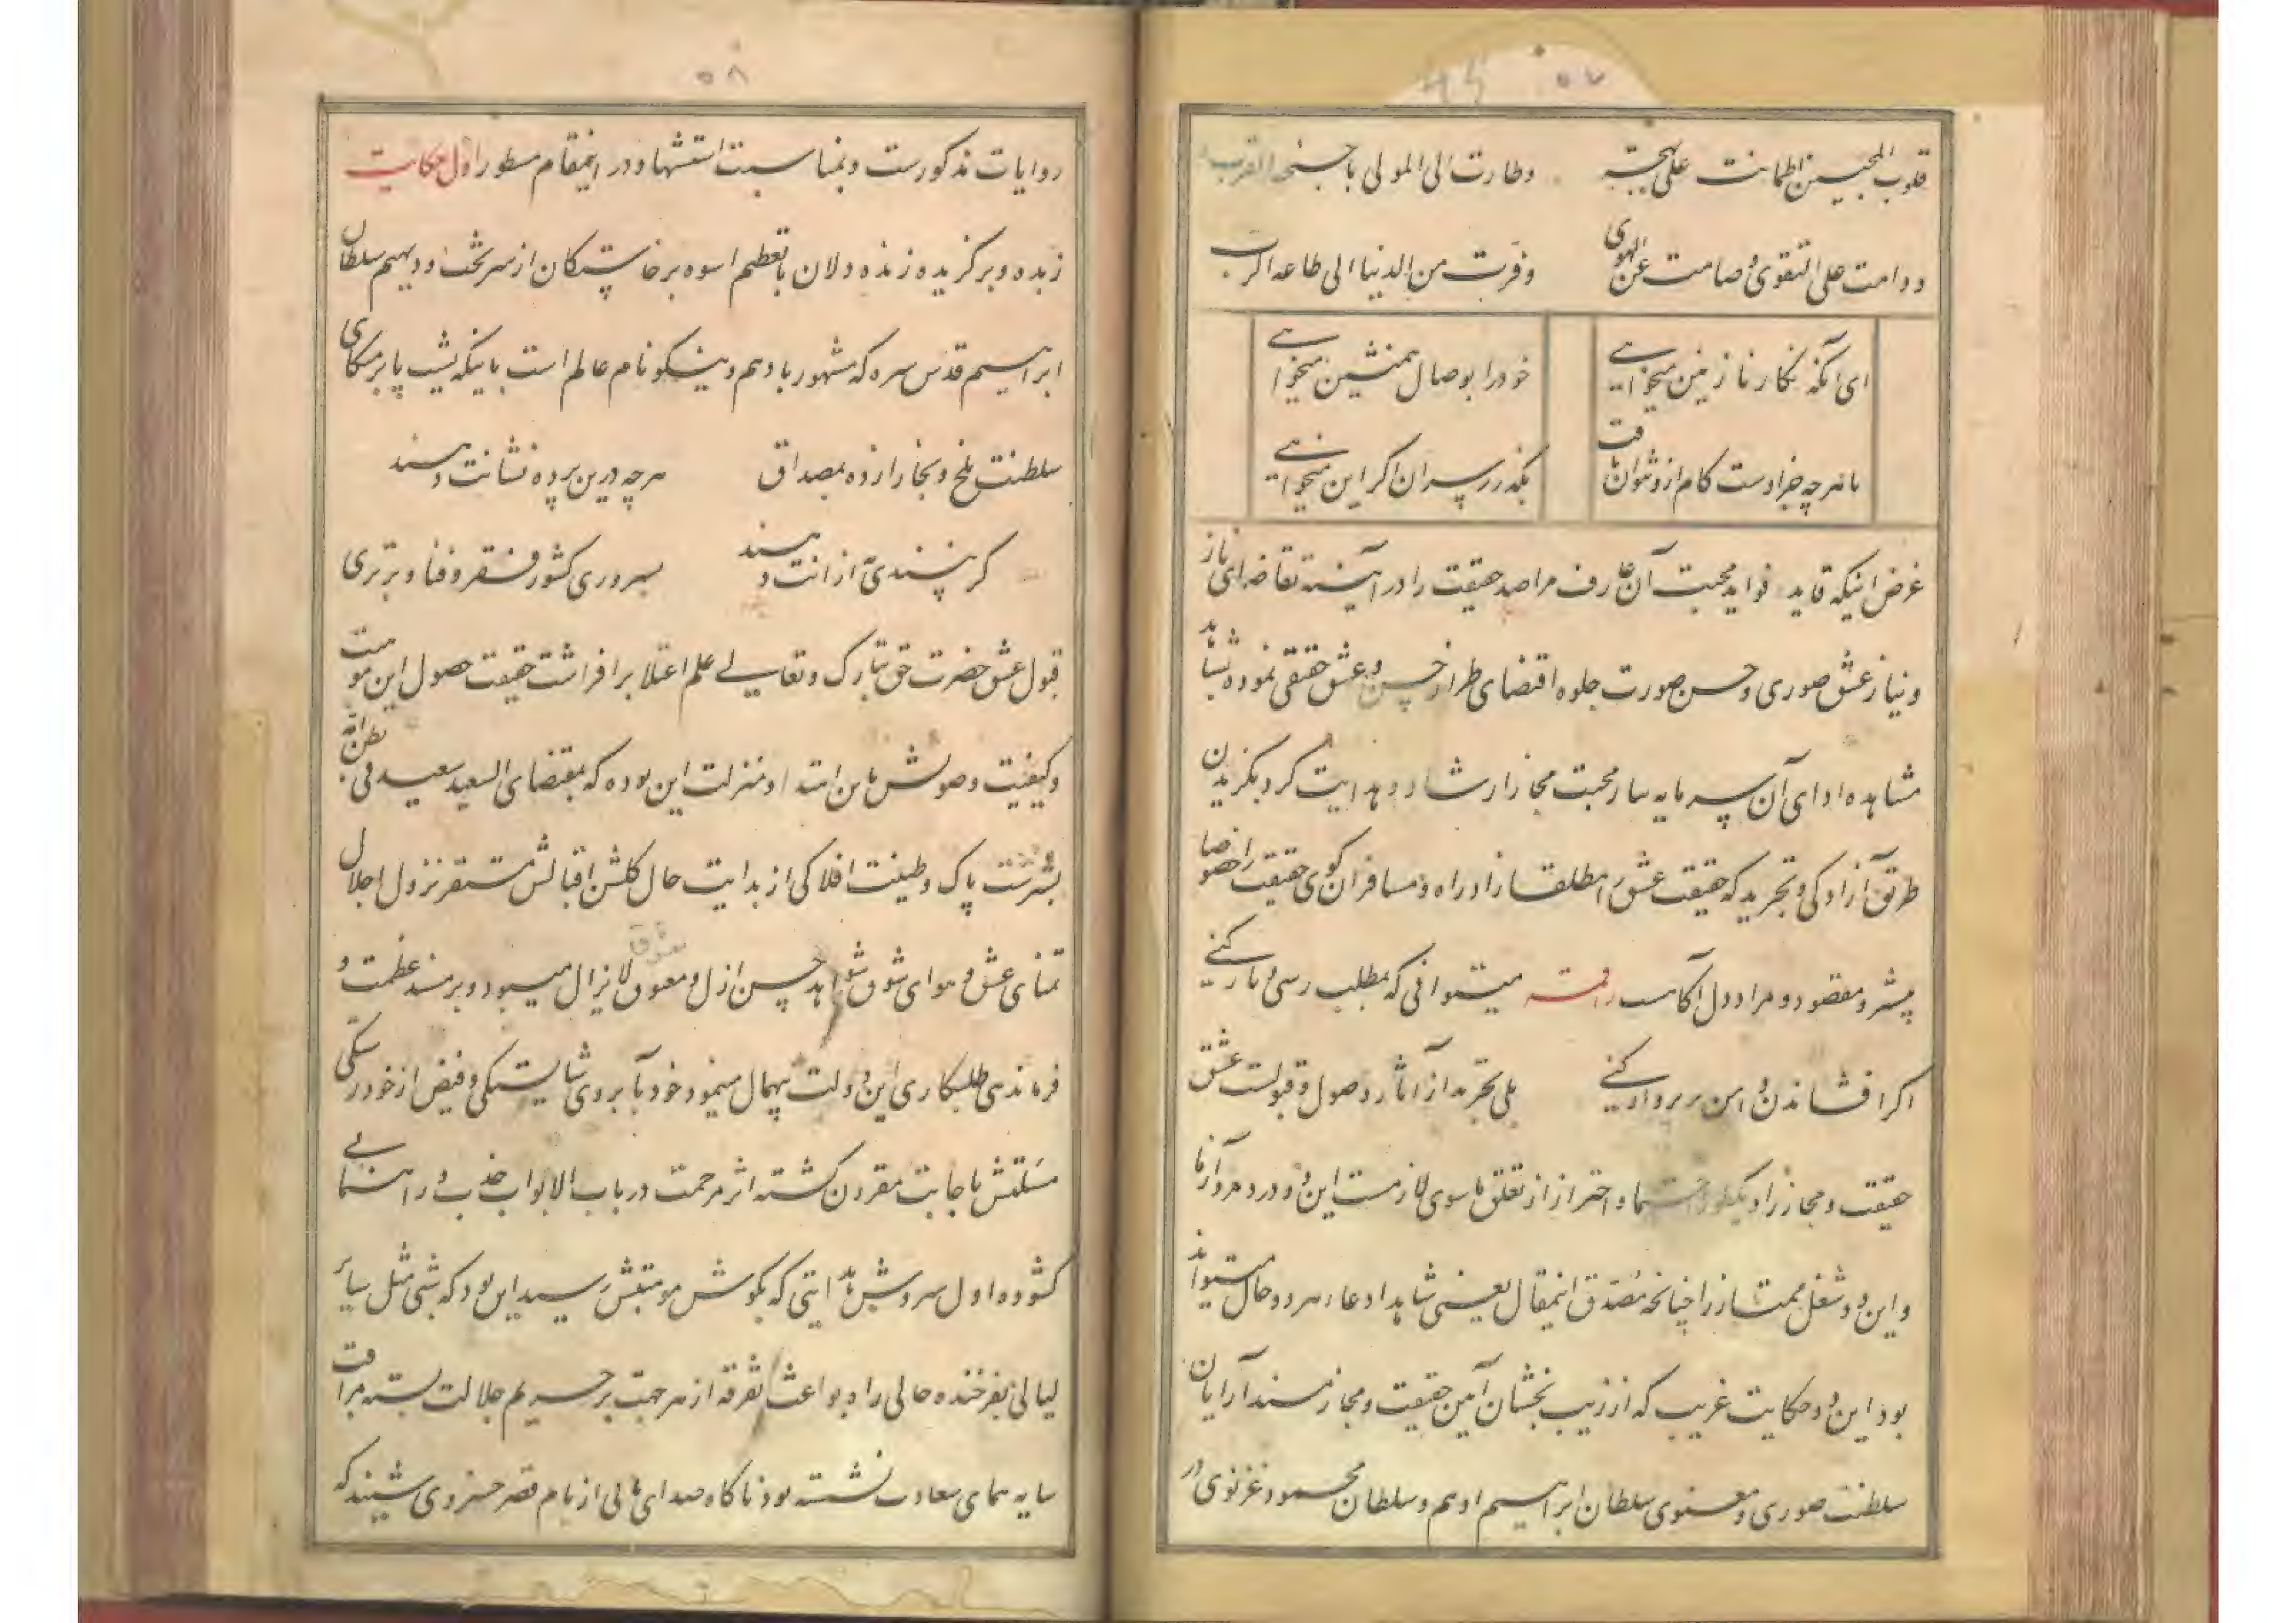 ۵۷
قلوب المحبین اطمانت علی بهجة وطارت الی المولی باجنحة القرب
ودامت علی التقوی وصامت عن الهوی وفرت من الدنیا الی طاعه الرب
ای آنکه نگار نازنین میخواهی خود را بوصال همنشین میخواهی
با هرچه جز اوست کام ازو نتوان یافت بگذر ز سر آن اگر این میخواهی
غرض اینکه قاید فواید محبت آن عارف مراصد حقیقت را در آینه تقاضای ناز
و نیاز عشق صوری و حسن صورت جلوه اقتضای طراز حسن و عشق حقیقی نموده بشاهد
مشاهده ادای آن سرمایه ساز محبت مجاز ارشاد و هدایت کرد بگزیدن
طریق آزادکی و تجرید که حقیقت عشق را مطلقا زاد راه و مسافران کوی حقیقت را خصوصا
پیشرو مقصود و مراد دل آکاست راقمه میتوانی که بمطلب رسی و بار کنی
اکر افشاندن دامن ز بر و بار کنی بلی تجرید از آثار وصول و قبولست عشق
حقیقت و مجاز را و احتراز از تعلق ماسوی لازمست این دو درد مرد آزما
و این دو شغل ممتاز را چنانچه مصدق اینمقال یعنی شاهد ادعاء هر دو حال میتواند
بود این دو حکایت غریب که از زیب بخشان آیین حقیقت و مجاز مسند آرایان
سلطنت صوری و معنوی سلطان ابراهیم ادهم و سلطان محمود غزنوی در
۵۸
روایات مذکورست و بمناسبت استشهاد در اینمقام مسطور اول حکایت
زبده و برگزیده زنده دلان باتعظیم اسوه برخاستکان از سر تخت و دیهیم سلطان
ابراهیم قدس سره که مشهور بادهم و نیکو نام عالم است باینکه شب پا بر متکای
سلطنت بلخ و بخارا زده بمصداق هرچه درین پرده نشانت دهند
کر نپسندی به از آنت دهند بسروری کشور فقر و فنا و برتری
قبول عشق حضرت حق تبارک و تعالی علم اعتلا برافراشت حقیقت حصول این موهبت
و کیفیت وصولش باین امتداد منزلت این بوده که بمقتضای السعید سعید فی بطن امه
بسرشت پاک و طینت افلاکی از بدایت حال کلشن اقبالش مستقر نزول اجلال
تمنای عشق و هوای شوق شواهد حسن ازل و معشوق لایزال میبود و بر مسند عظمت و
فرماندهی طلبکاری این دولت بیهمال مینمود خود بآبروی شایستکی و فیض از خود رستکی
ملتمسش باجابت مقرون کشته اثر مرحمت در باب الابواب جذب و راهنمایی
کشوده اول سروش هدایتی که بکوش هوشش رسید این بود که شبی مثل سایر
لیالی بفرخنده حالی راه بواعث تفرقه از هر جهت بر حریم جلالت بسته بمرافقت
سایه همای سعادت نشسته بود ناکاه صدای پایی از بام قصر خسروی شنید که